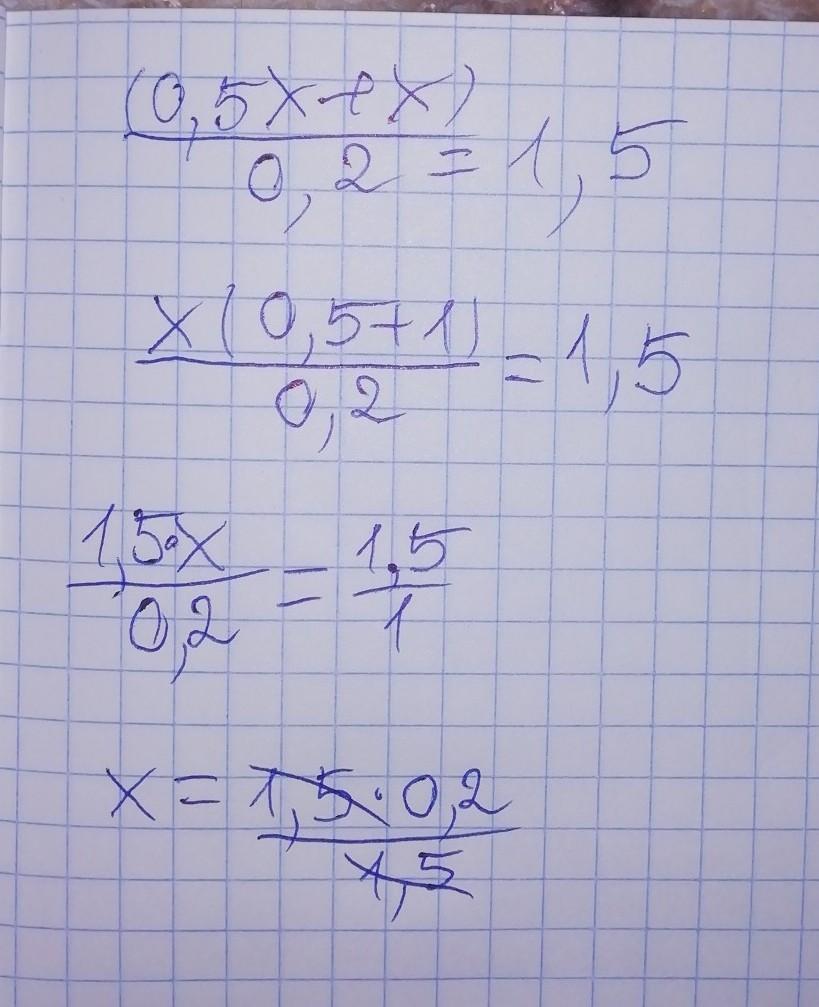 (0,5x+x)/0,2 = 1,5
x(0,5+1)/0,2 = 1,5
1,5·x/0,2 = 1,5/1
x = 1,5·0,2/1,5